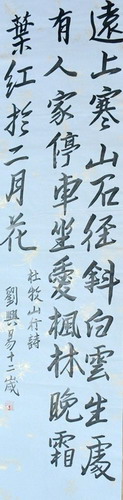 遠上寒山石徑斜白雲生處
有人家停車坐愛楓林晚霜
葉紅於二月花
杜牧山行詩
劉興易十二歲